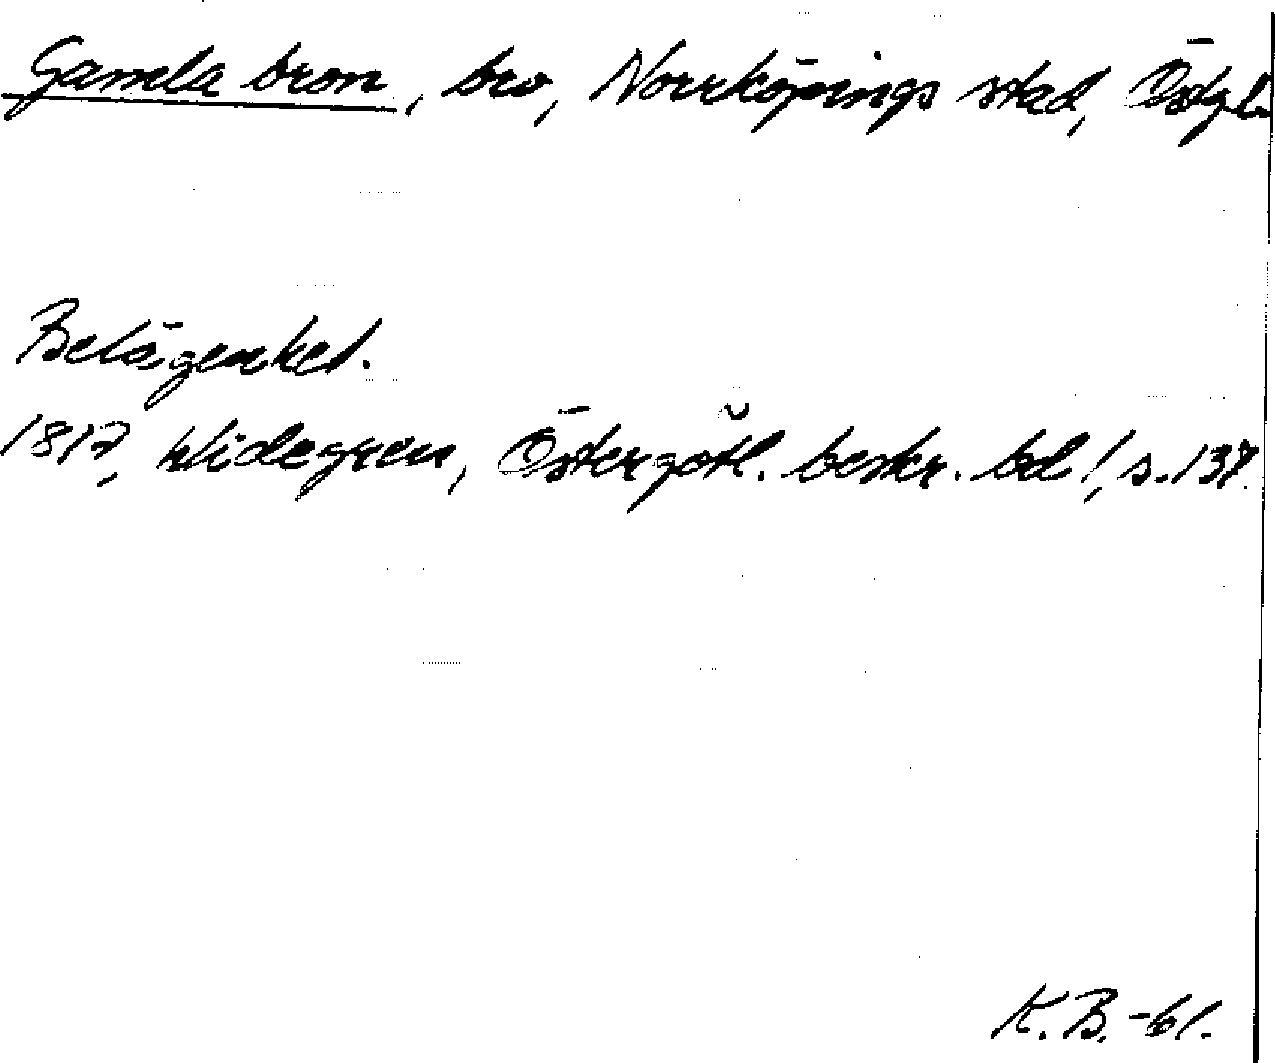 Gamla bron, bro, Norrköpings stad, Östg.l.
Belägenhet.
1817, Widegren, Östergötl. beskr. bd 1, s. 137.
K. B. -61.